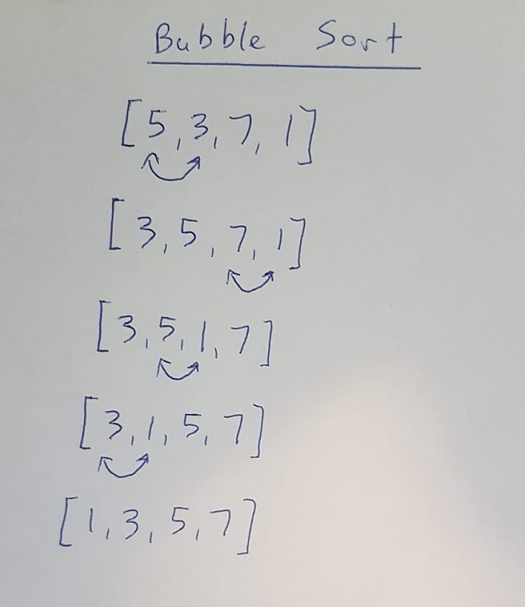 Bubble Sort
[5,3,7,1]
[3,5,7,1]
[3,5,1,7]
[3,1,5,7]
[1,3,5,7]